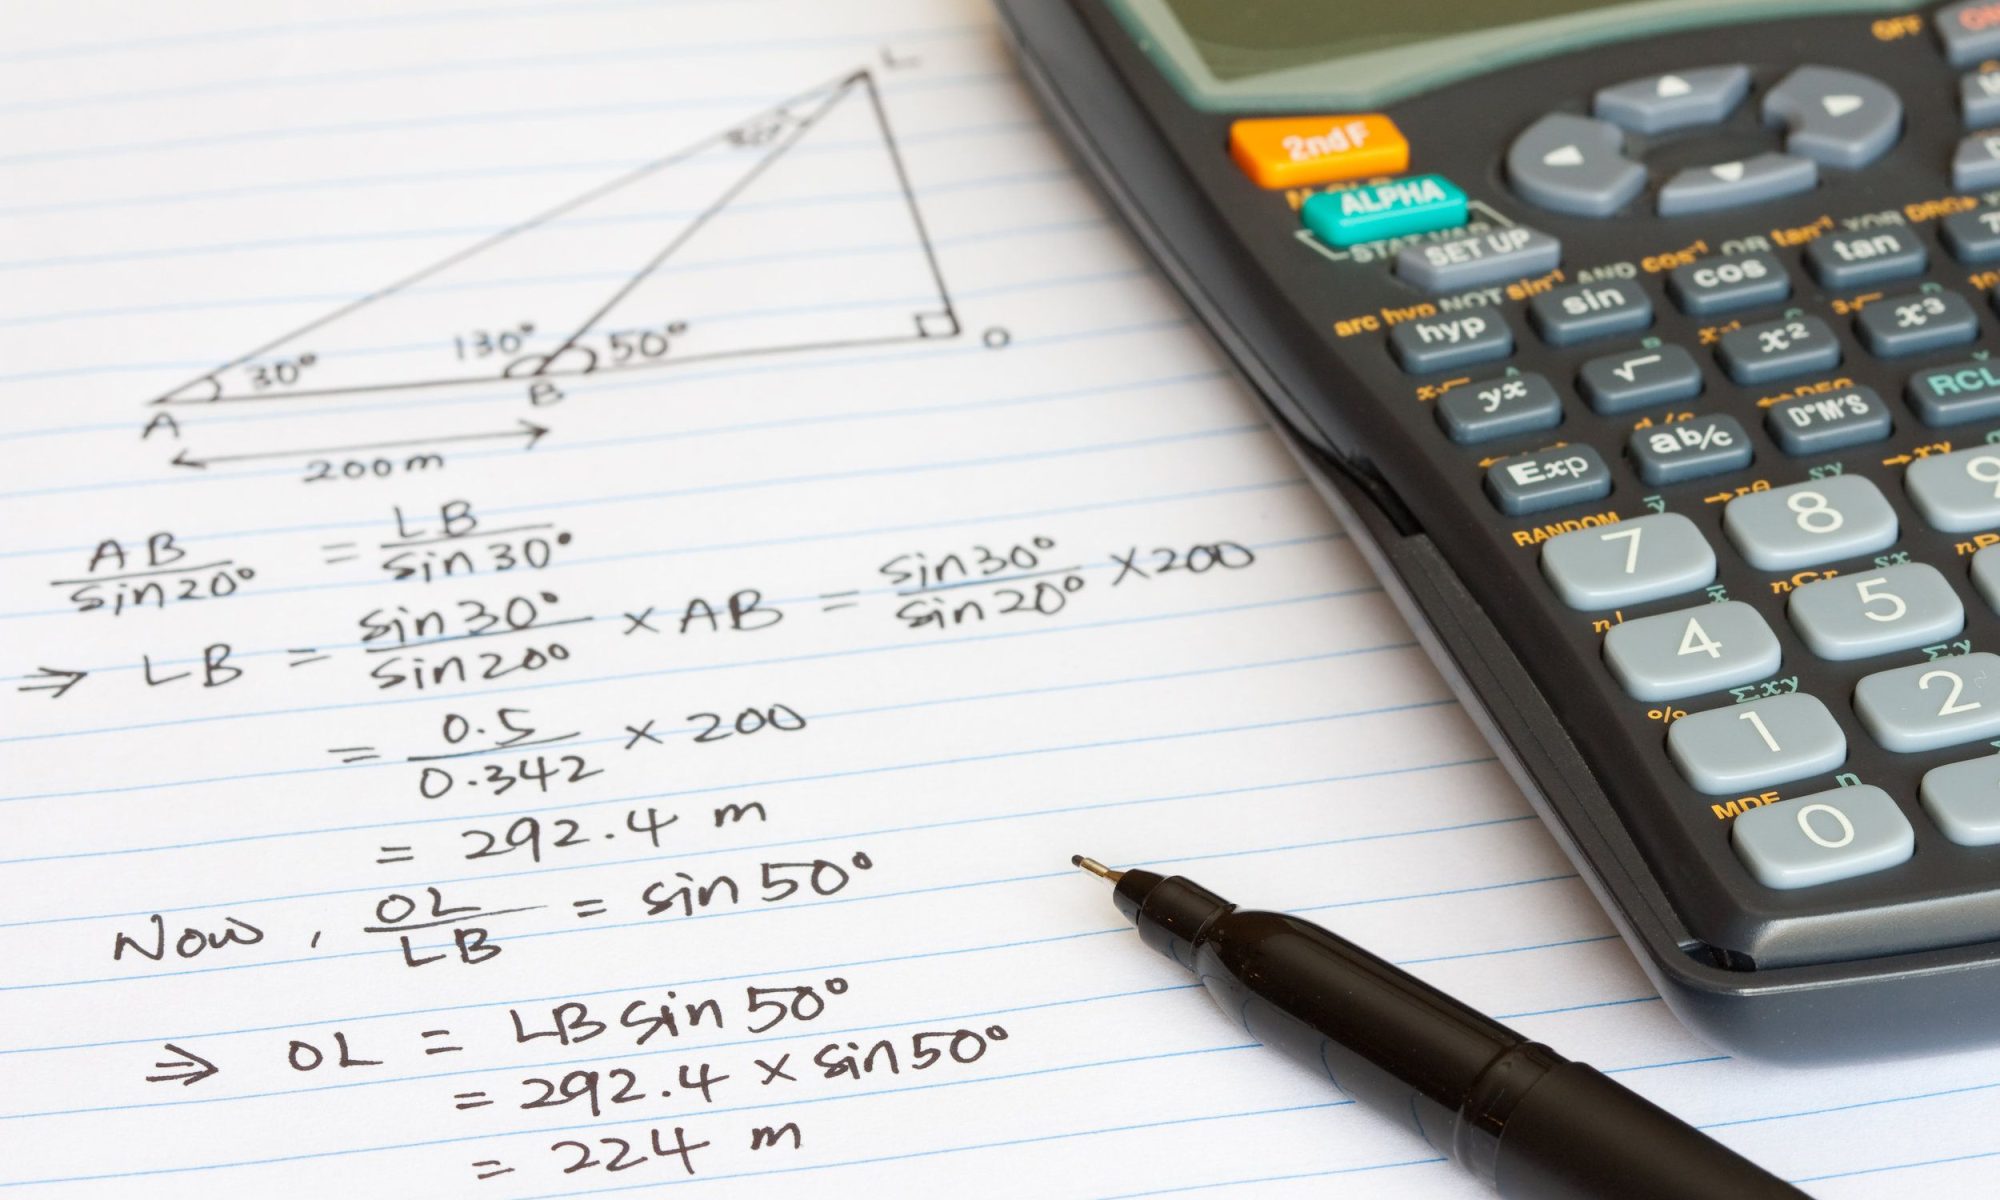 L
30°
130°
50°
A
B
O
200m
AB/sin20° = LB/sin30°
⇒ LB = sin30°/sin20° × AB = sin30°/sin20° × 200
= 0.5/0.342 × 200
= 292.4 m
Now, OL/LB = sin50°
⇒ OL = LB sin50°
= 292.4 × sin50°
= 224 m
OFF
2ndF
ALPHA
STAT VAR
SET UP
arc hyp NOT sin⁻¹ AND cos⁻¹ OR tan⁻¹ XOR DRG▸
hyp sin cos tan
yx √ x² x³
Exp ab/c D°M'S RCL
RANDOM →rθ →xy
7 8 9
n! nCr
4 5
% Σxy Σy
1 2
MDF n
0